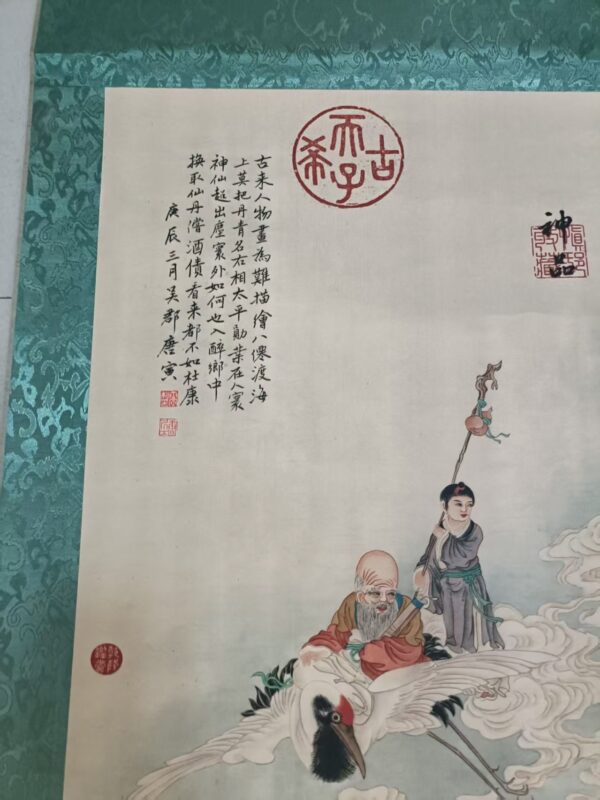 古希天子
古来人物畫為難描繪八僊渡海
上莫把丹青名右相太平勛業在人寰
神仙超出塵寰外如何也入醉鄉中
換取仙丹嚐酒債看来都不如杜康
庚辰三月吴郡唐寅
神品